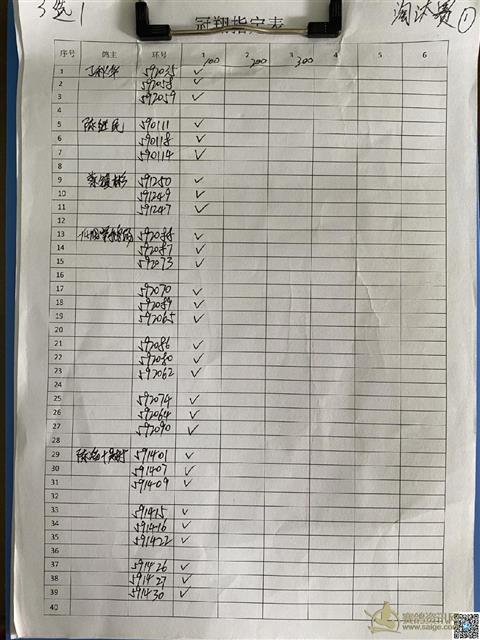 淘汰赛①
冠翔指定表
序号 鸽主 环号 1 2 3 4 5 6
100 200 300
1 592035 ✓
2 592058 ✓
3 592059 ✓
4
5 陈继民 590111 ✓
6 590118 ✓
7 590114 ✓
8
9 591250 ✓
10 591249 ✓
11 591247 ✓
12
13 592088 ✓
14 592087 ✓
15 592073 ✓
16
17 592070 ✓
18 592089 ✓
19 592065 ✓
20
21 592086 ✓
22 592080 ✓
23 592062 ✓
24
25 592074 ✓
26 592064 ✓
27 592090 ✓
28
29 591401 ✓
30 591407 ✓
31 591409 ✓
32
33 591415 ✓
34 591416 ✓
35 591422 ✓
36
37 591426 ✓
38 591427 ✓
39 591430 ✓
40
赛鸽资讯网
www.saige.com